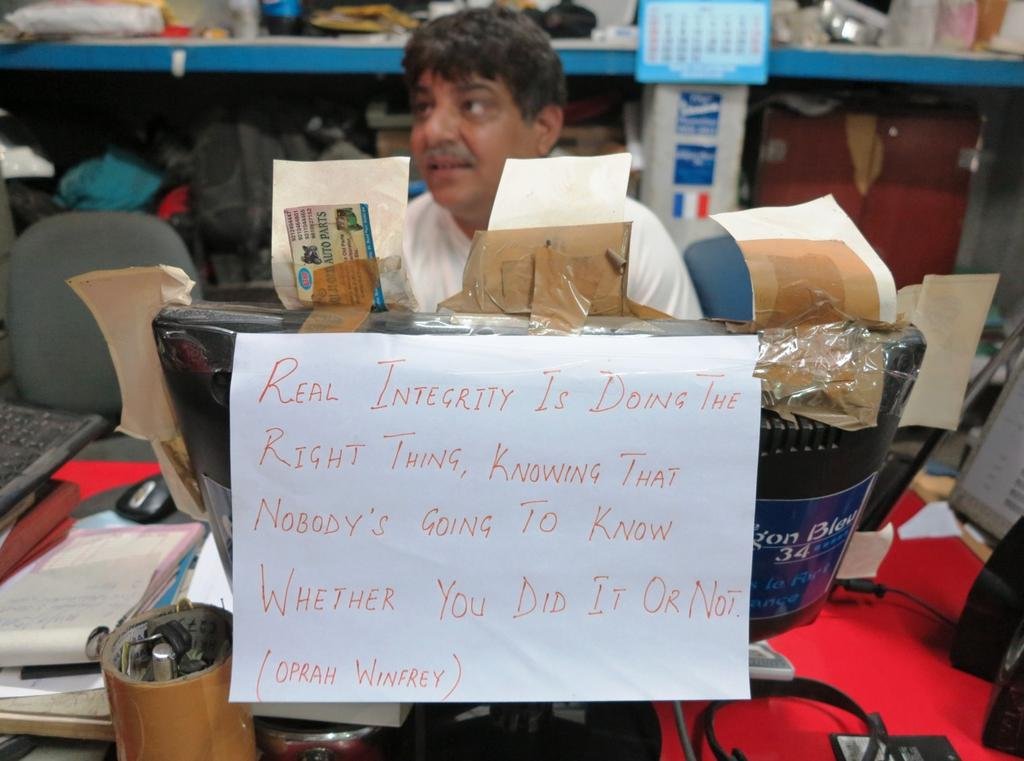 AUTO PARTS
REAL INTEGRITY IS DOING THE
RIGHT THING, KNOWING THAT
NOBODY'S GOING TO KNOW
WHETHER YOU DID IT OR NOT.
(OPRAH WINFREY)
gon Bleu
34